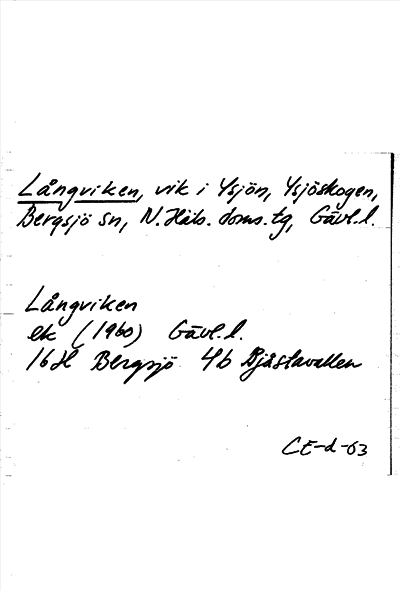 Långviken, vik i Ysjön, Ysjöskogen,
Bergsjö sn, N. Häls. doms. tg, Gävl. l.
Långviken
ek (1960) Gävl. l.
16H Bergsjö 4b Bjåstavallen
CE-d-63